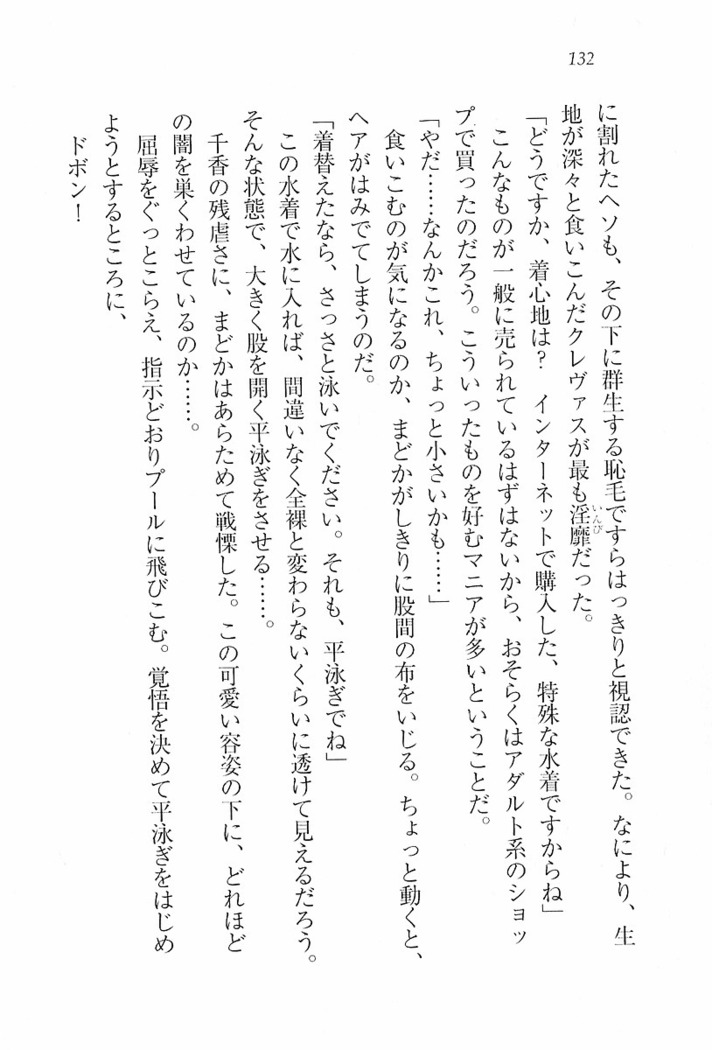 132
に割れたヘソも、その下に群生する恥毛ですらはっきりと視認できた。なにより、生
地が深々と食いこんだクレヴァスが最も淫靡だった。
いんび
「どうですか、着心地は？　インターネットで購入した、特殊な水着ですからね」
こんなものが一般に売られているはずはないから、おそらくはアダルト系のショッ
プで買ったのだろう。こういったものを好むマニアが多いということだ。
「やだ……なんかこれ、ちょっと小さいかも……」
食いこむのが気になるのか、まどかがしきりに股間の布をいじる。ちょっと動くと、
ヘアがはみでてしまうのだ。
「着替えたなら、さっさと泳いでください。それも、平泳ぎでね」
この水着で水に入れば、間違いなく全裸と変わらないくらいに透けて見えるだろう。
そんな状態で、大きく股を開く平泳ぎをさせる……。
千香の残虐さに、まどかはあらためて戦慄した。この可愛い容姿の下に、どれほど
の闇を巣くわせているのか……。
屈辱をぐっとこらえ、指示どおりプールに飛びこむ。覚悟を決めて平泳ぎをはじめ
ようとするところに、
ドボン！